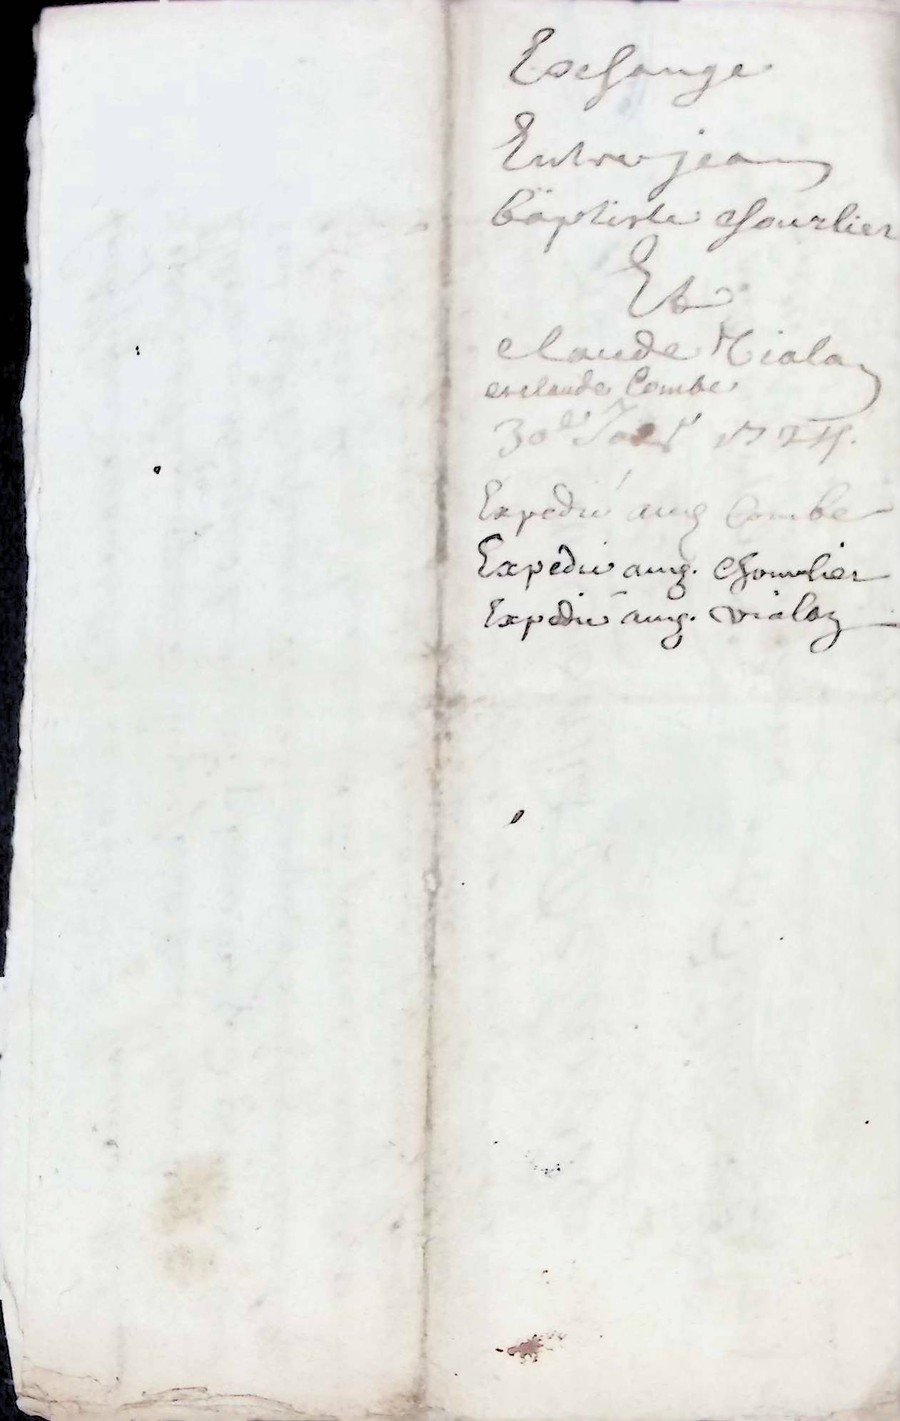 Eschange
Entre jean
baptiste chourlier
Et
claude Vialoy
et claude Combe
30e 17
Expedié aug Combe
Expedié aug. chourlier
Expedié aug. vialoy